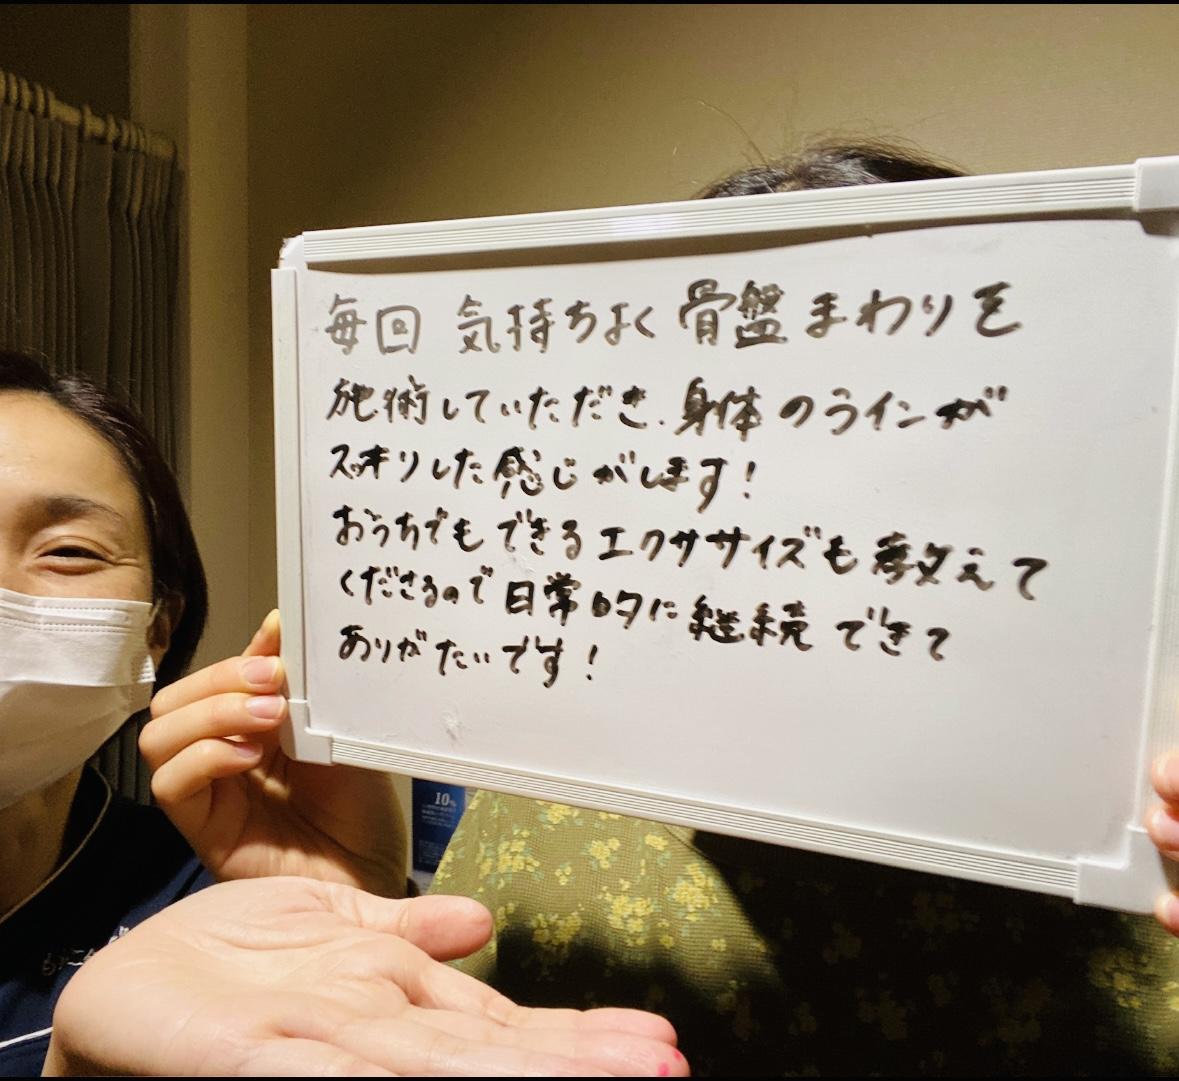 毎回 気持ちよく骨盤まわりを
施術していただき、身体のラインが
スッキリした感じがします!
おうちでもできるエクササイズも教えて
くださるので日常的に継続できて
ありがたいです!
10%